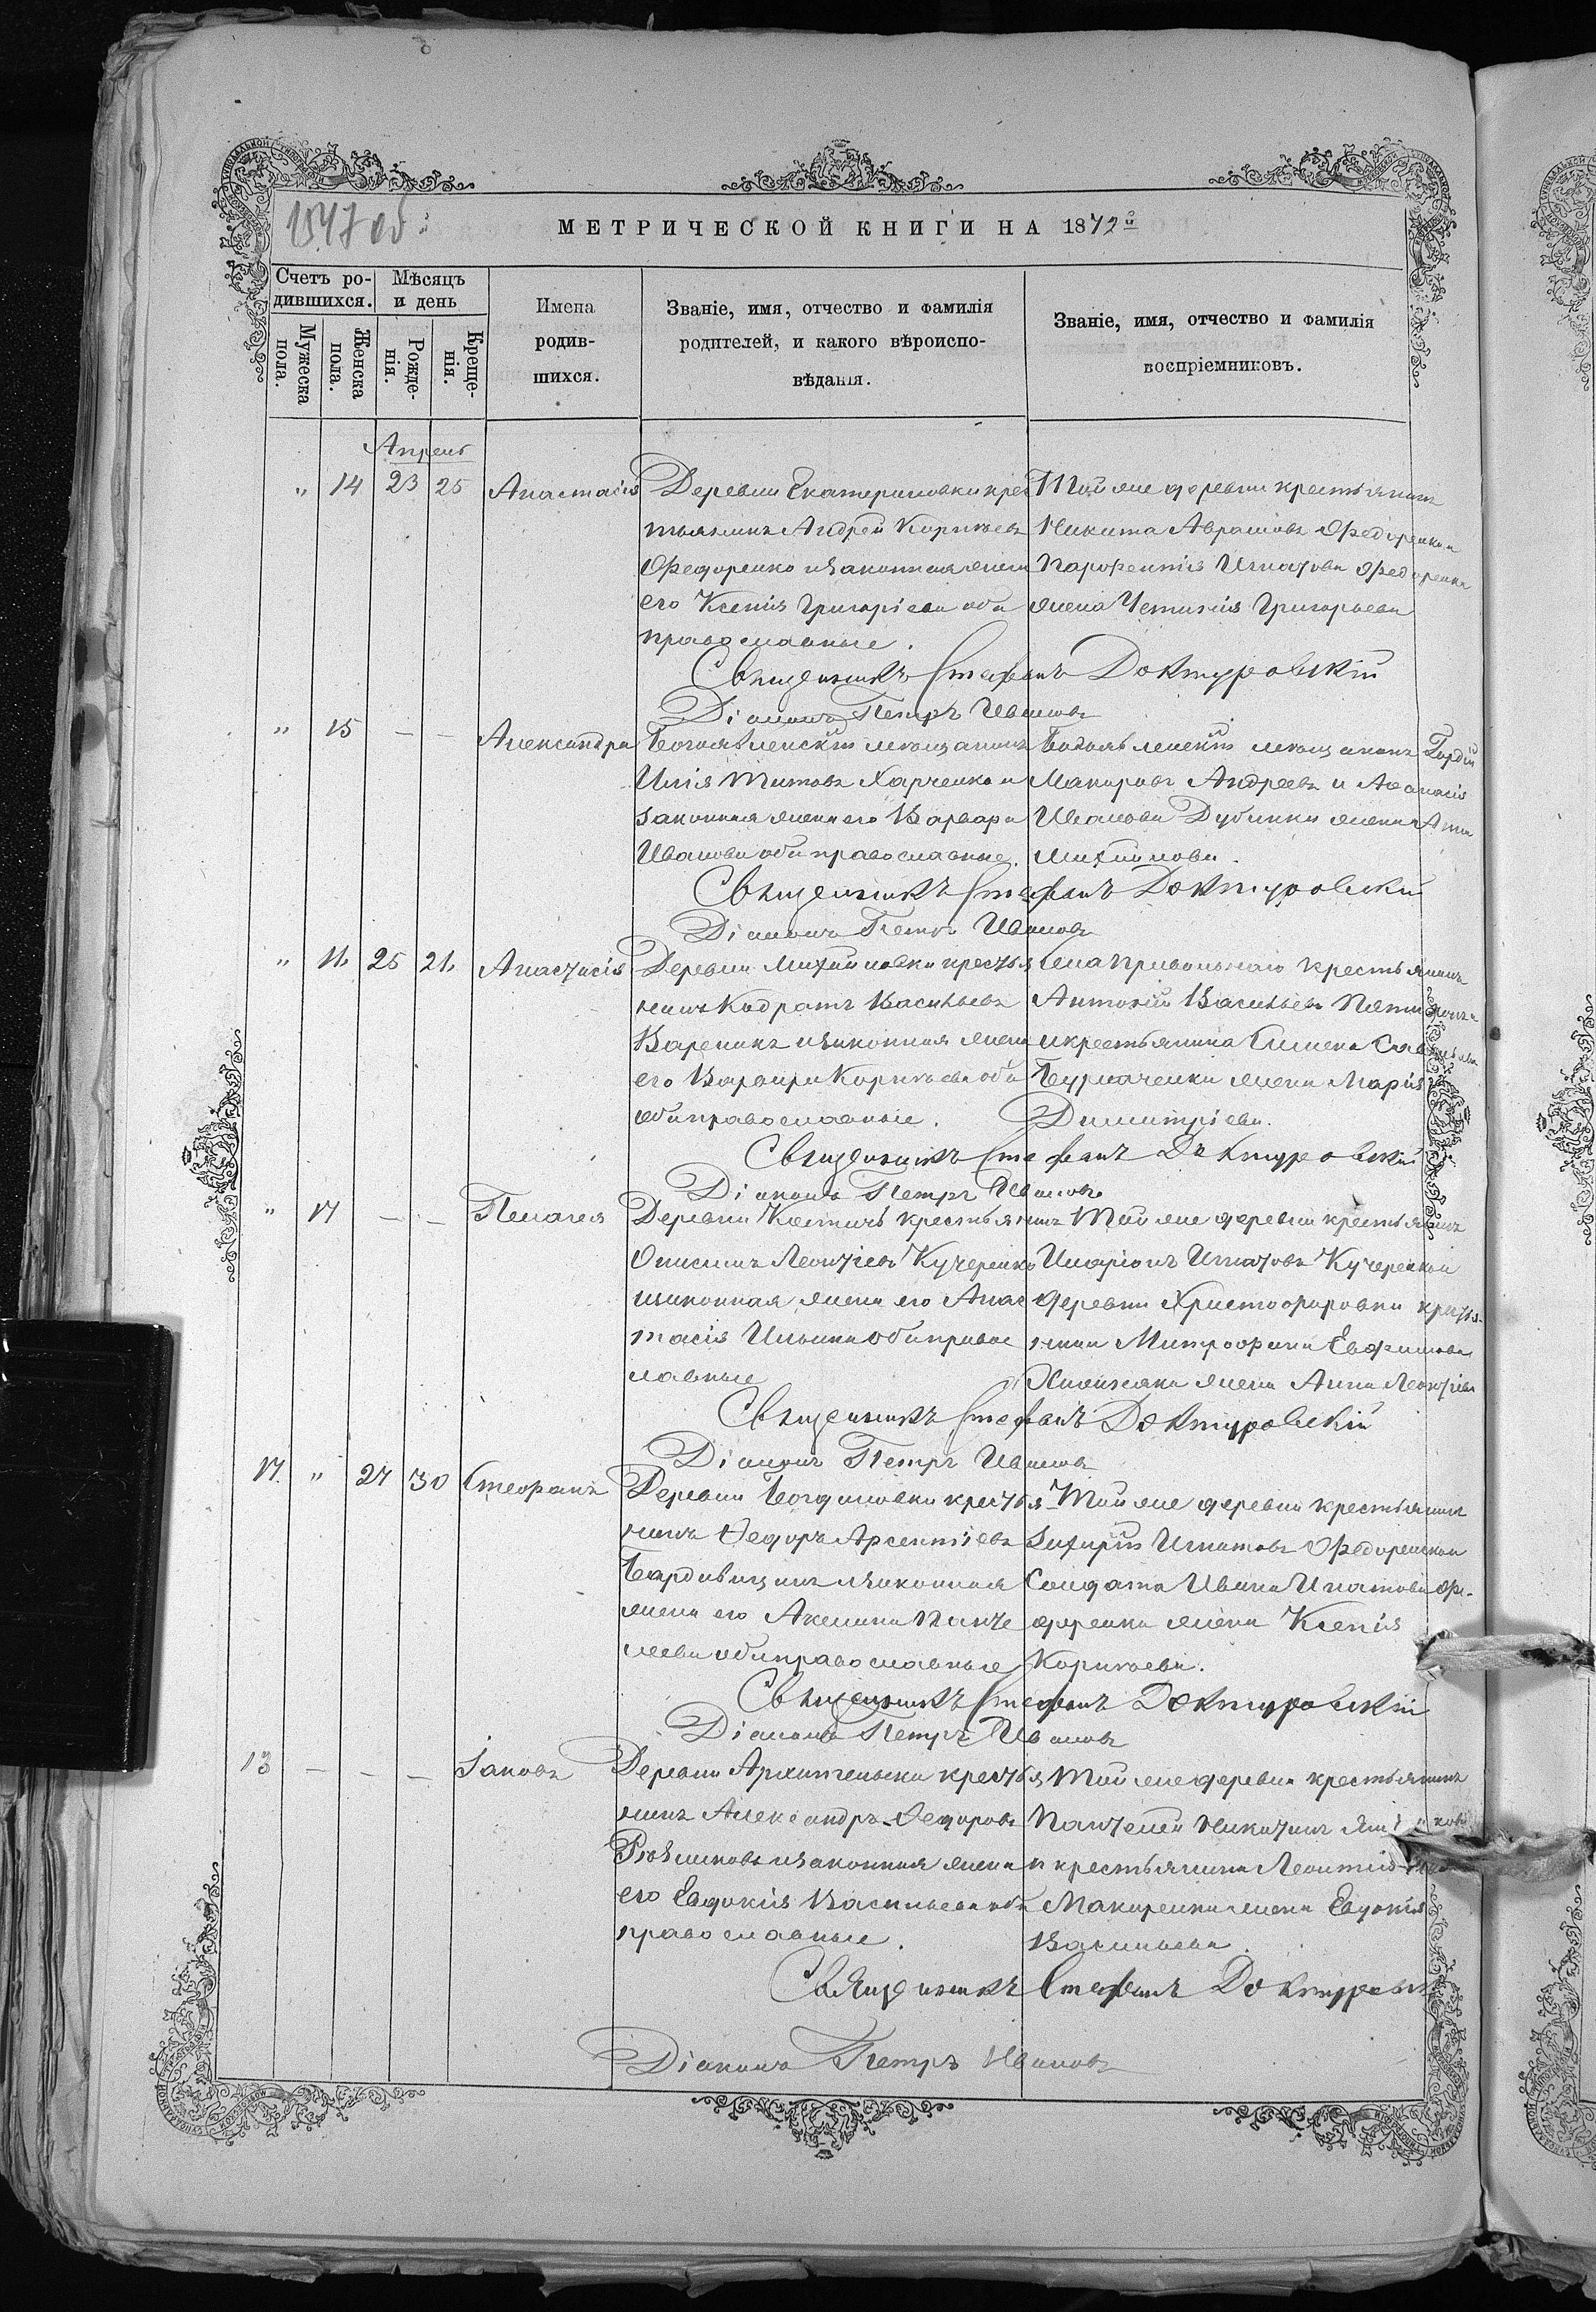 1547 об:
МЕТРИЧЕСКОЙ КНИГИ НА 1872й
Счетъ родившихся.
Мужеска пола.
Женска пола.
Мѣсяцъ и день
Рожденія.
Крещенія.
Имена родившихся.
Званіе, имя, отчество и фамилія
родителей, и какого вѣроиспо-
вѣданія.
Званіе, имя, отчество и фамилія
воспріемниковъ.
Апрель
" 14 23 25 Анастасія
Деревни Екатериновки крес
тьянинъ Андрей Корнѣевъ
Федоренко и законная жена
его Ксенія Григоріева оба
православные.
Той же деревни крестьянинъ
Никита Аврамовъ Федоренко и
Игнатова Федоренка
жена Григорьева
Священникъ Стефанъ Доктуровскій
Діаконъ Петръ Ивановъ
" 15 — — Александра
Богоявленскій мещанинъ
Илія Титовъ Харченко и
законная жена его Варвара
Иванова оба православные.
Богоявленскій мещанинъ Гордій
Макаровъ Андреевъ и Афанасія
Иванова Дубинки жена Анна
Михайлова.
Священникъ Стефанъ Доктуровскій
Діаконъ Петръ Ивановъ
" 16 25 26 Анастасія
Деревни Михайловки крестья
нинъ Кодратъ Васильевъ
Вареникъ и законная жена
его Варвара Корнѣева оба
оба православные.
Села Привольнаго крестьянинъ
Антоній Васильевъ
и крестьянина Симена
Бурлаченки жена Марія
Димитріева.
Священникъ Стефанъ Доктуровскій
Діаконъ Петръ Ивановъ
" 17 — — Пелагея
Деревни Костичъ крестьянинъ
Онисимъ Леонтіевъ Кучеренко
и законная жена его Анас
тасія Ильина оба правос
лавные
Той же деревни крестьянинъ
Иларіонъ Игнатовъ Кучеренко и
деревни Христофоровки крестья-
нина Митрофана Евфимова
жена Анна Леонтіева
Священникъ Стефанъ Доктуровскій
Діаконъ Петръ Ивановъ
17. " 27 30 Стефанъ
Деревни Богдановки крестья
нинъ Ѳедоръ Арсентіевъ
и законная
жена его Акелина Панте
леева оба православные
Той же деревни крестьянинъ
Захарій Игнатовъ Федоренко и
Солдата Ивана Игнатова Фе-
доренка жена Ксенія
Корнѣева.
Священникъ Стефанъ Доктуровскій
Діаконъ Петръ Ивановъ
13 — — — Іаковъ
Деревни крестья
нинъ Александръ Ѳедоровъ
и законная жена
его Евдокія Васильева оба
православные.
Той же деревни крестьянинъ
Пантелей Никитинъ
и крестьянина Леонтія
Макаренки жена Евдокія
Васильева.
Священникъ Стефанъ Доктуровскій
Діаконъ Петръ Ивановъ